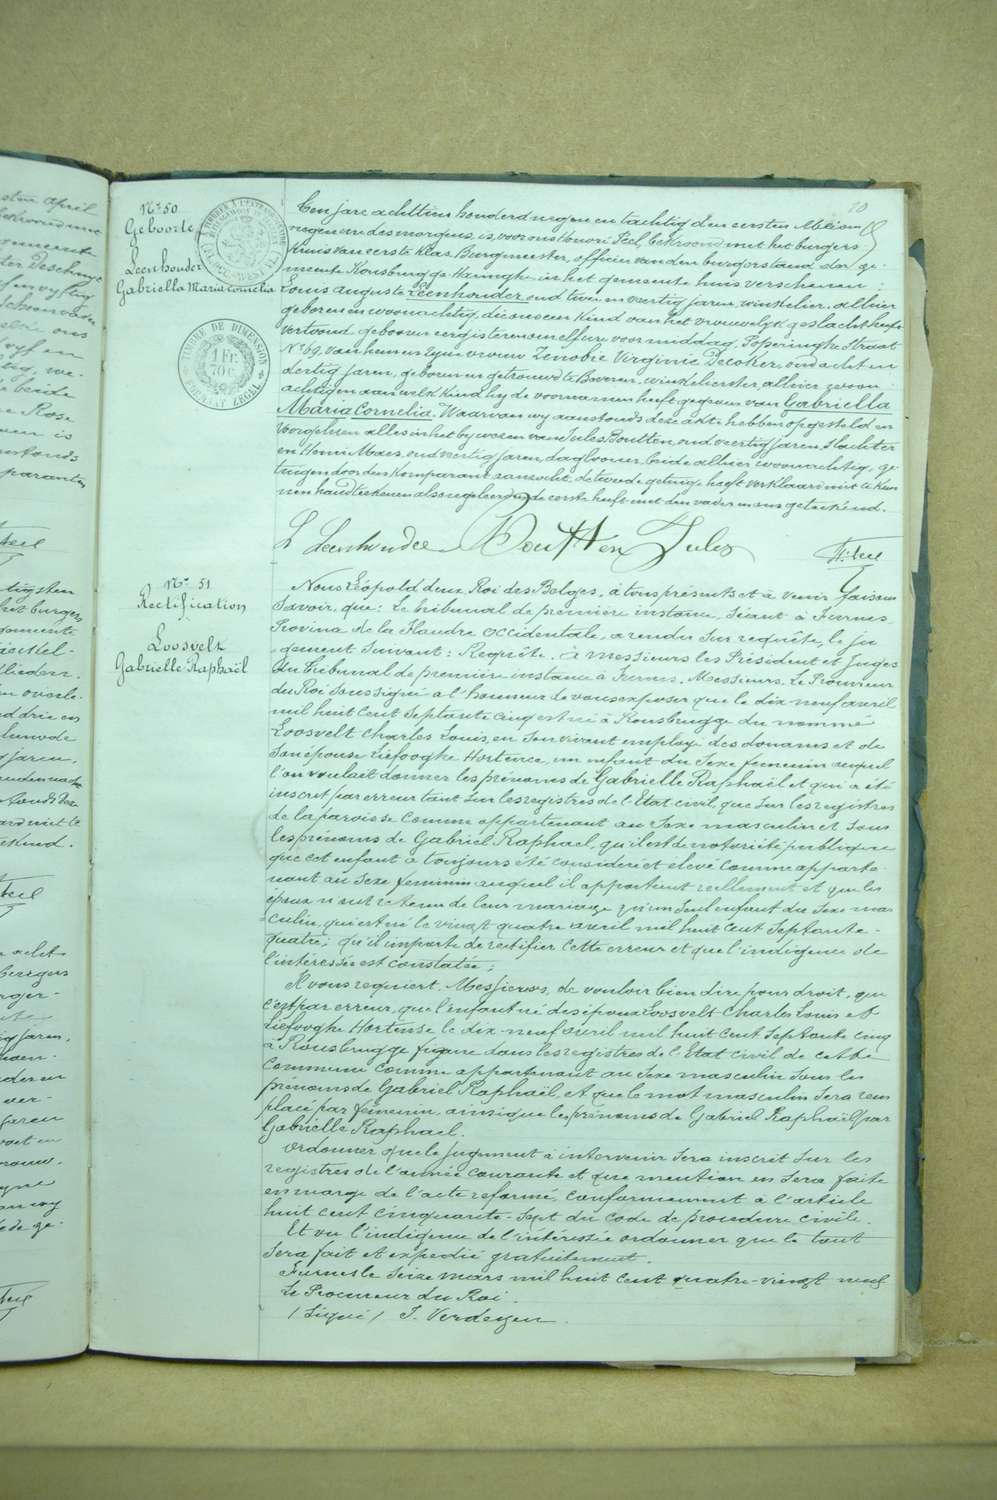 20
Nr 50
Geboorte
Leenhouder
Gabriella Maria Cornelia
TIMBRE DE DIMENSION
1 Fr.
70 c.
FORMAAT ZEGEL
Ten jare achttien honderd negen en tachtig den eersten
negen ure des morgens, is, voor ons Henri Feel, bekroond met het burgers
kruis van eerste klas, Burgmeester, officier van den burgerstand der ge-
meente Rousbrugge Haringhe in het gemeente huis verschenen:
Louis auguste Leenhouder, oud twee en veertig jaren, winkelier, alhier
geboren en woonachtig, die ons een kind van het vrouwelijk geslacht heeft
vertoond, geboren eergisteren elf ure voormiddag, Popperinghe Straat
No 69, van hem en zyne vrouw Zenobie Virginie Decoker, oud acht en
dertig jaren, geboren en getrouwd te Beveren, winkelierster, alhier woon-
achtig en aan welk kind hy de voornamen heeft gegeven van Gabriella
Maria Cornelia. Waarvan wy aanstonds deze akte hebben opgesteld en
voorgelezen alles in het bywezen van Jules Boutten, oud veertig jaren, slachter
en Henri Maes, oud veertig jaren, daglooner, beide alhier woonachtig, ge
tuigen door den komparant aanzocht, de tweede getuige heeft verklaard niet te kun
nen handteekenen als ongeleerd en de eerste heeft met den vader en ons geteekend.
L Leenhouder Boutten Jules H. Feel
Nr 51
Rectification
Loosvelt
Gabrielle Raphaël
Nous Léopold deux Roi des Belges, à tous présents et à venir faisons
Savoir, que: Le tribunal de première instance, Séant à Furnes
Province de la Flandre Occidentale, a rendu sur requête, le ju
gement suivant: Requête. à Messieurs les Président et Juges
du Tribunal de première instance à Furnes. Messieurs, Le Procureur
du Roi soussigné a l'honneur de vous exposer que le dix neuf avril
mil huit cent septante cinq est né à Rousbrugge du nommé
Loosvelt Charles Louis, en son vivant employé des douanes et de
son épouse Liefooghe Hortence, un enfant du sexe feminin auquel
l'on voulait donner les prénoms de Gabrielle Raphaël et qui a été
inscrit par erreur tant sur les registres de l'Etat civil, que sur les registres
de la paroisse comme appartenant au sexe masculin et sous
les prénoms de Gabriel Raphael, qu'il est de notoriété publique
que cet enfant a toujours été consideré et elevé comme apparte-
nant au sexe feminin auquel il appartient reellement et que les
époux n'ont retenu de leur mariage qu'un seul enfant du sexe mas
culin, qui est né le vingt quatre avril mil huit cent septante-
quatre; qu'il importe de rectifier cette erreur et que l'indigence de
l'intéressée est constatée;
Il vous requiert, Messieurs, de vouloir bien dire pour droit, que
c'est par erreur, que l'enfant né des époux Loosvelt Charles Louis et
Liefooghe Hortense le dix-neuf avril mil huit cent septante cinq
à Rousbrugge figure dans les registres de l'Etat civil de cette
Commune comme appartenant au sexe masculin sous les
prénoms de Gabriel Raphaël, et que le mot masculin sera rem
placé par féminin, ainsi que les prénoms de Gabriel Raphaël par
Gabrielle Raphael.
ordonner que le jugement à intervenir sera inscrit sur les
registres de l'année courante et que mention en sera faite
en marge de l'acte reformé, conformement à l'article
huit cent cinquante-sept du code de procedure civile.
Et vu l'indigence de l'intéressée ordonner que le tout
sera fait et expedié gratuitement.
Furnes le seize mars mil huit cent quatre-vingt neuf
Le Procureur du Roi.
/ Signé / J. Verdegen.